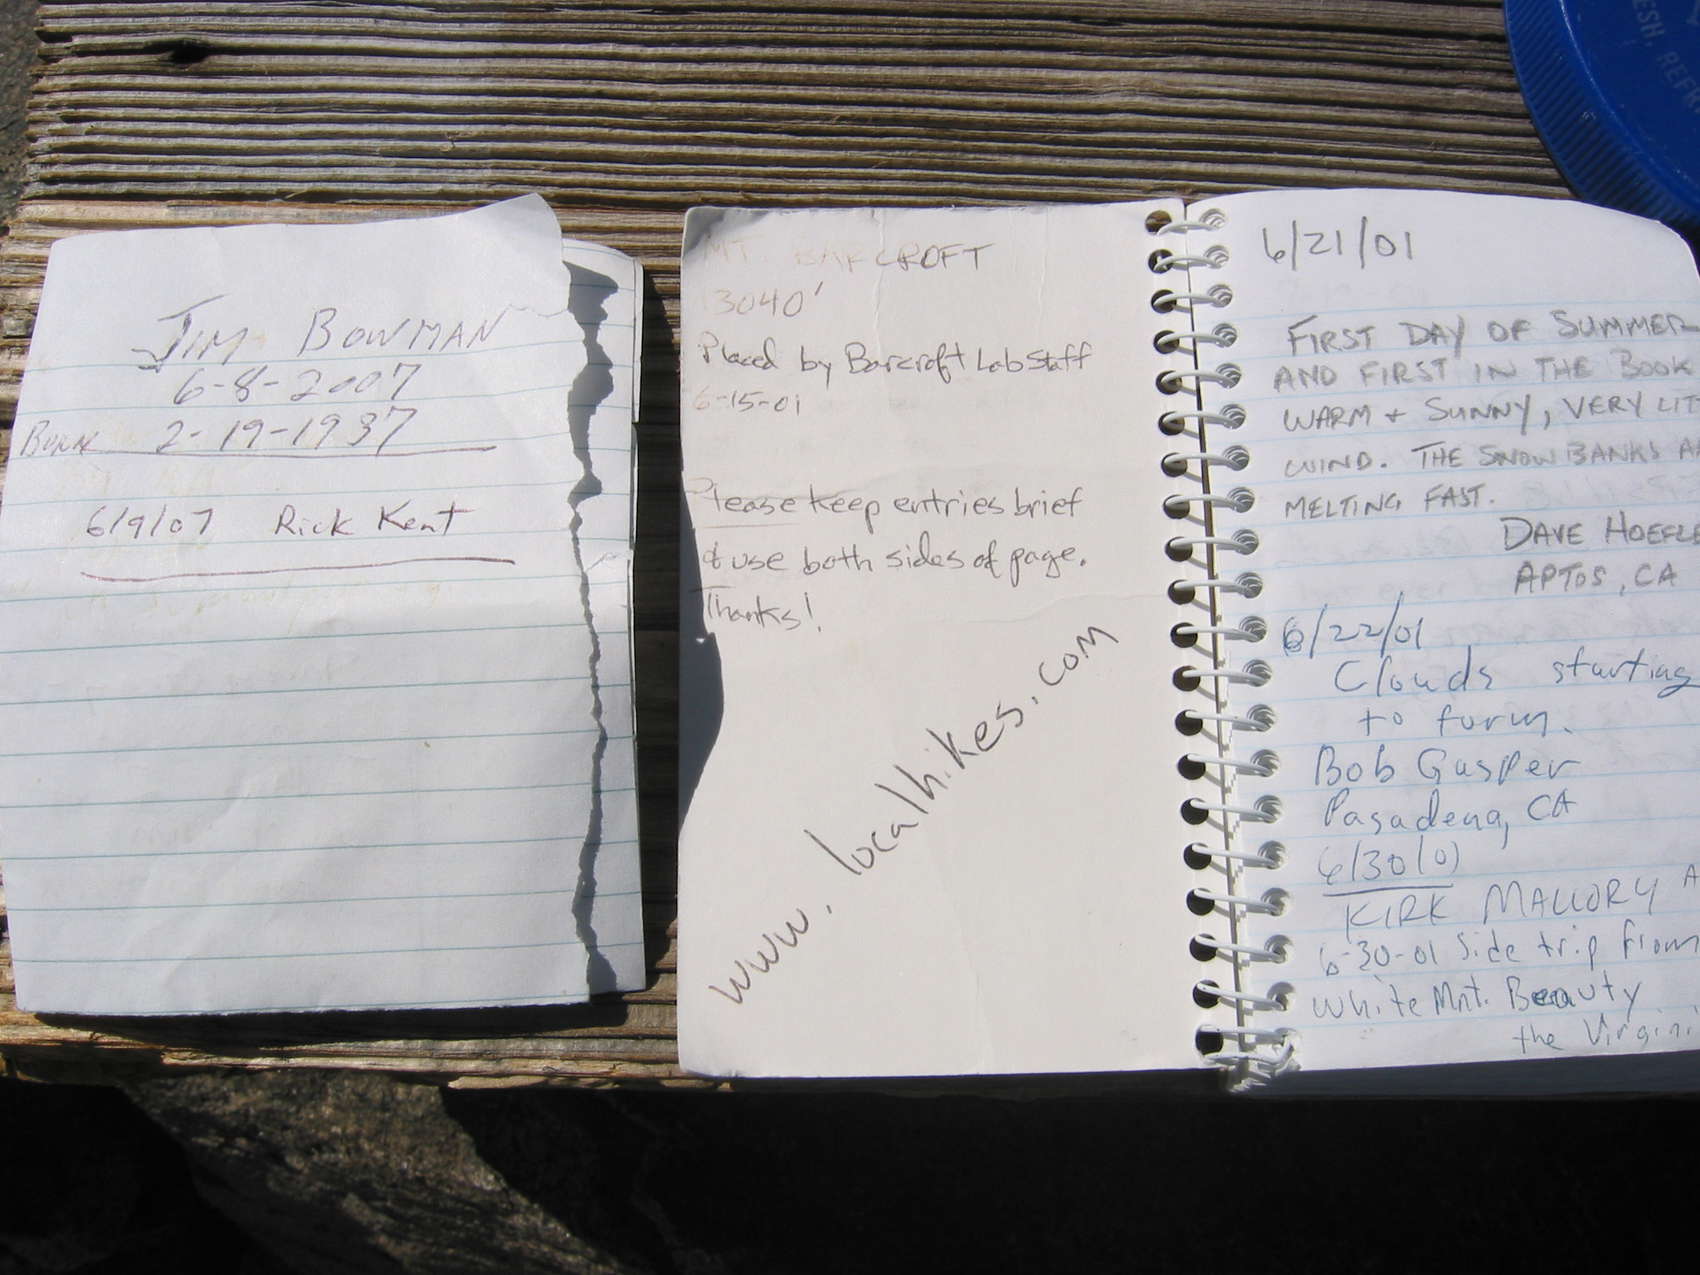 JIM BOWMAN
6-8-2007
BORN 2-19-1937
6/9/07 Rick Kent
MT. BARCROFT
13040'
Placed by Barcroft Lab Staff
6-15-01
Please keep entries brief
& use both sides of page.
Thanks!
www.localhikes.com
6/21/01
FIRST DAY OF SUMMER
AND FIRST IN THE BOOK
WARM + SUNNY, VERY LIT
WIND. THE SNOWBANKS A
MELTING FAST.
DAVE HOEFLE
APTOS, CA
6/22/01
Clouds starting
to form.
Bob Gasper
Pasadena, CA
6/30/01
KIRK MALLORY A
6-30-01 Side trip from
White Mnt. Beauty
the Virgini
ESH, REFR